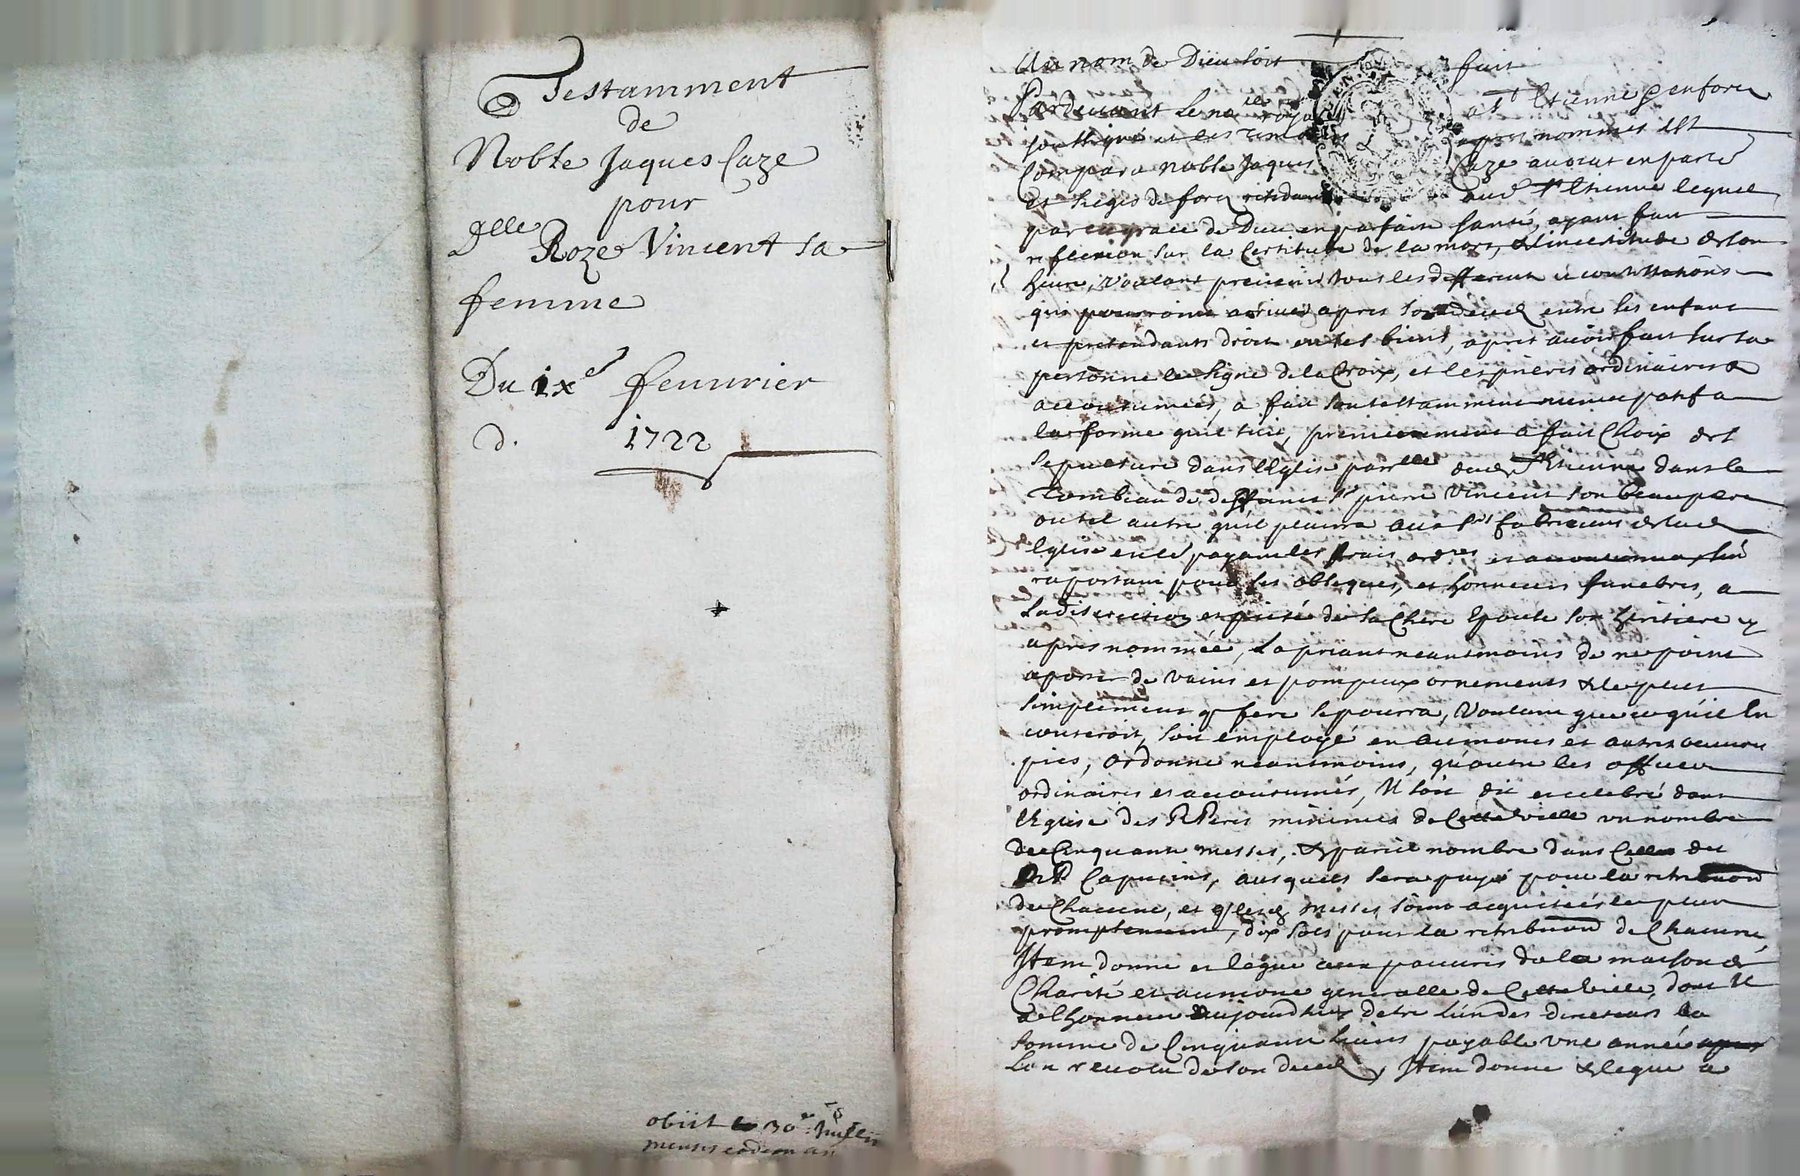 Testamment
de
Noble Jaques Caze
pour
dlle Roze Vincent sa
femme
Du ixe feuvrier
d. 1722
obiit le 30e
mensis eodem an
Au nom de Dieu soit fait
Pardevant le nore royal a St Etienne
soussigné et les temoins apres nommes est
Compara noble Jaques Caze avocat en parlt
et Regis de forez residant aud St Etienne lequel
par la grace de Dieu en parfaite santé, ayant fait
reflexion sur la Certitude de la mort, & l'incertitude de son
heure, voulant prevenir tous les differents et contestations
qui pourroint arriver apres son deced entre les enfans
et pretendants droit en ses biens, apres avoir fait sur sa
personne le signe de la Croix, et les prieres ordinaires &
accoutumées, a fait son testamment nuncupatif a
la forme qu'il suit, premierement a fait Choix de sa
sepulture dans l'Eglise parlle dud St Etienne dans le
Tombeau de deffunct Sr pierre Vincent son beaupere
ou tel autre qu'il plaira aux Srs fabriciens de lad
Eglise en le payant les frais ordres et accoutumes se
raportant pour ses obseques, et honneurs funebres, a
la discretion et pieté de sa Chere Epouse son heritiere cy
apres nommée, la priant neantmoins de ne point
aporter de vains et pompeux ornements & le plus
simplement q fere se pourra, Voulant que ce qu'il en
couteroit, soit employé en aumones et autres oeuvres
pies, ordonne neantmoins, qu'outre les offices
ordinaires et accoutumés, Il soit dit et celebré dans
l'Eglise des RPeres minimes de Cette ville un nombre
de Cinquante messes, & pareil nombre dans Celle des
RP Capucins, ausquels sera payé pour la retribution
de Chacune, et q lesd messes soint acquitées le plus
promptement, dix sols pour la retribution de Chacune,
Item donne et legue aux pauvres de la maison de
Charité et aumone generalle de Cette ville, dont Il
a l'honneur aujourdhuy detre l'un des directeurs la
somme de Cinquante livres payable une année apres
l'an revolu de son deced, Item donne & legue a